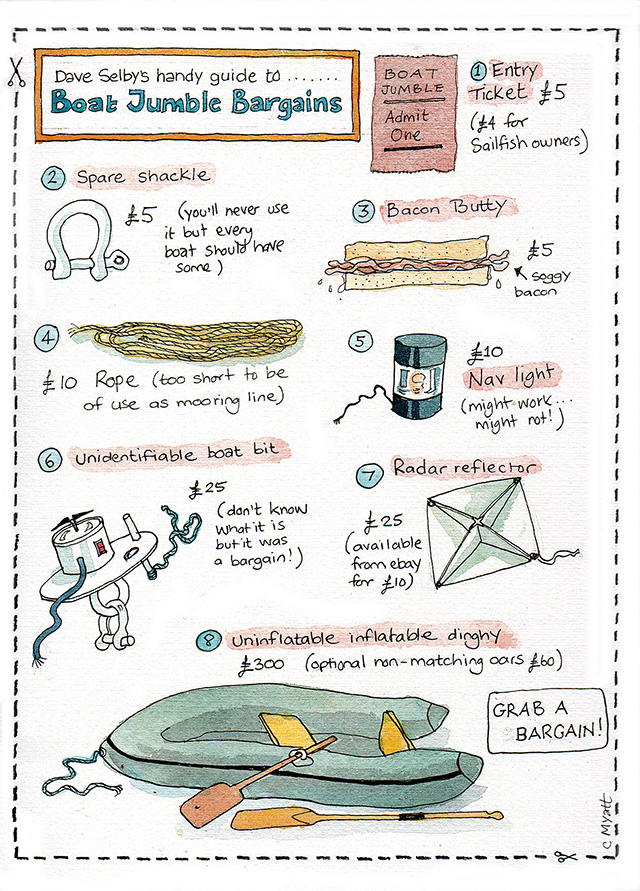 Dave Selby's handy guide to ........
Boat Jumble Bargains
BOAT
JUMBLE
Admit
One
1 Entry
Ticket £5
(£4 for
Sailfish owners)
2 Spare shackle
£5 (you'll never use
it but every
boat should have
some)
3 Bacon Butty
£5
soggy
bacon
4
£10 Rope (too short to be
of use as mooring line)
5
£10
Nav light
(might work...
might not!)
6 Unidentifiable boat bit
£25
(don't know
what it is
but it was
a bargain!)
7 Radar reflector
£25
(available
from ebay
for £10)
8 Uninflatable inflatable dinghy
£300 (optional non-matching oars £60)
GRAB A
BARGAIN!
C Myatt